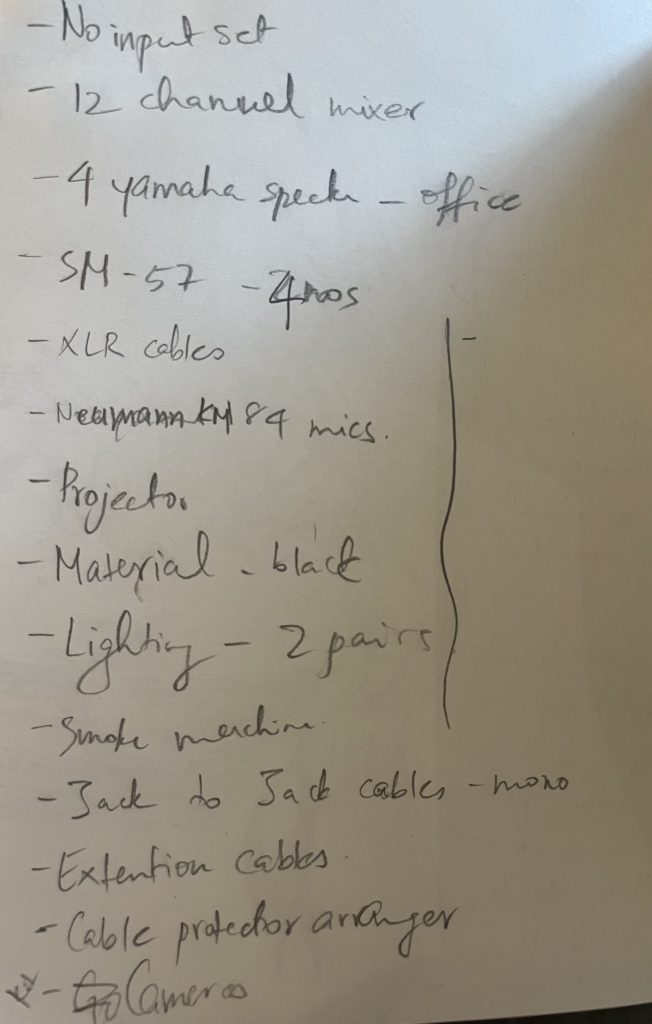 - No input set
- 12 channel mixer
- 4 yamaha - office
- SM-57 - 4nos
- XLR cables
- Neumann KM 84 mics.
- Projector
- Material - black
- Lighting - 2 pairs
- Smoke machine
- Jack to Jack cables - mono
- Extention cables
- Cable protector arranger
- Cameras